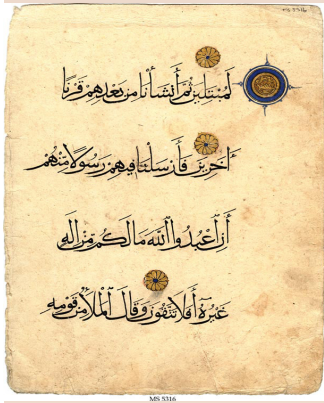 MS 5316
لَمُبْتَلِينَ ثُمَّ أَنشَأْنَا مِن بَعْدِهِمْ قَرْنًا
آخَرِينَ فَأَرْسَلْنَا فِيهِمْ رَسُولًا مِّنْهُمْ
أَنِ اعْبُدُوا اللَّهَ مَا لَكُم مِّنْ إِلَٰهٍ
غَيْرُهُ أَفَلَا تَتَّقُونَ وَقَالَ الْمَلَأُ مِن قَوْمِهِ
MS 5316